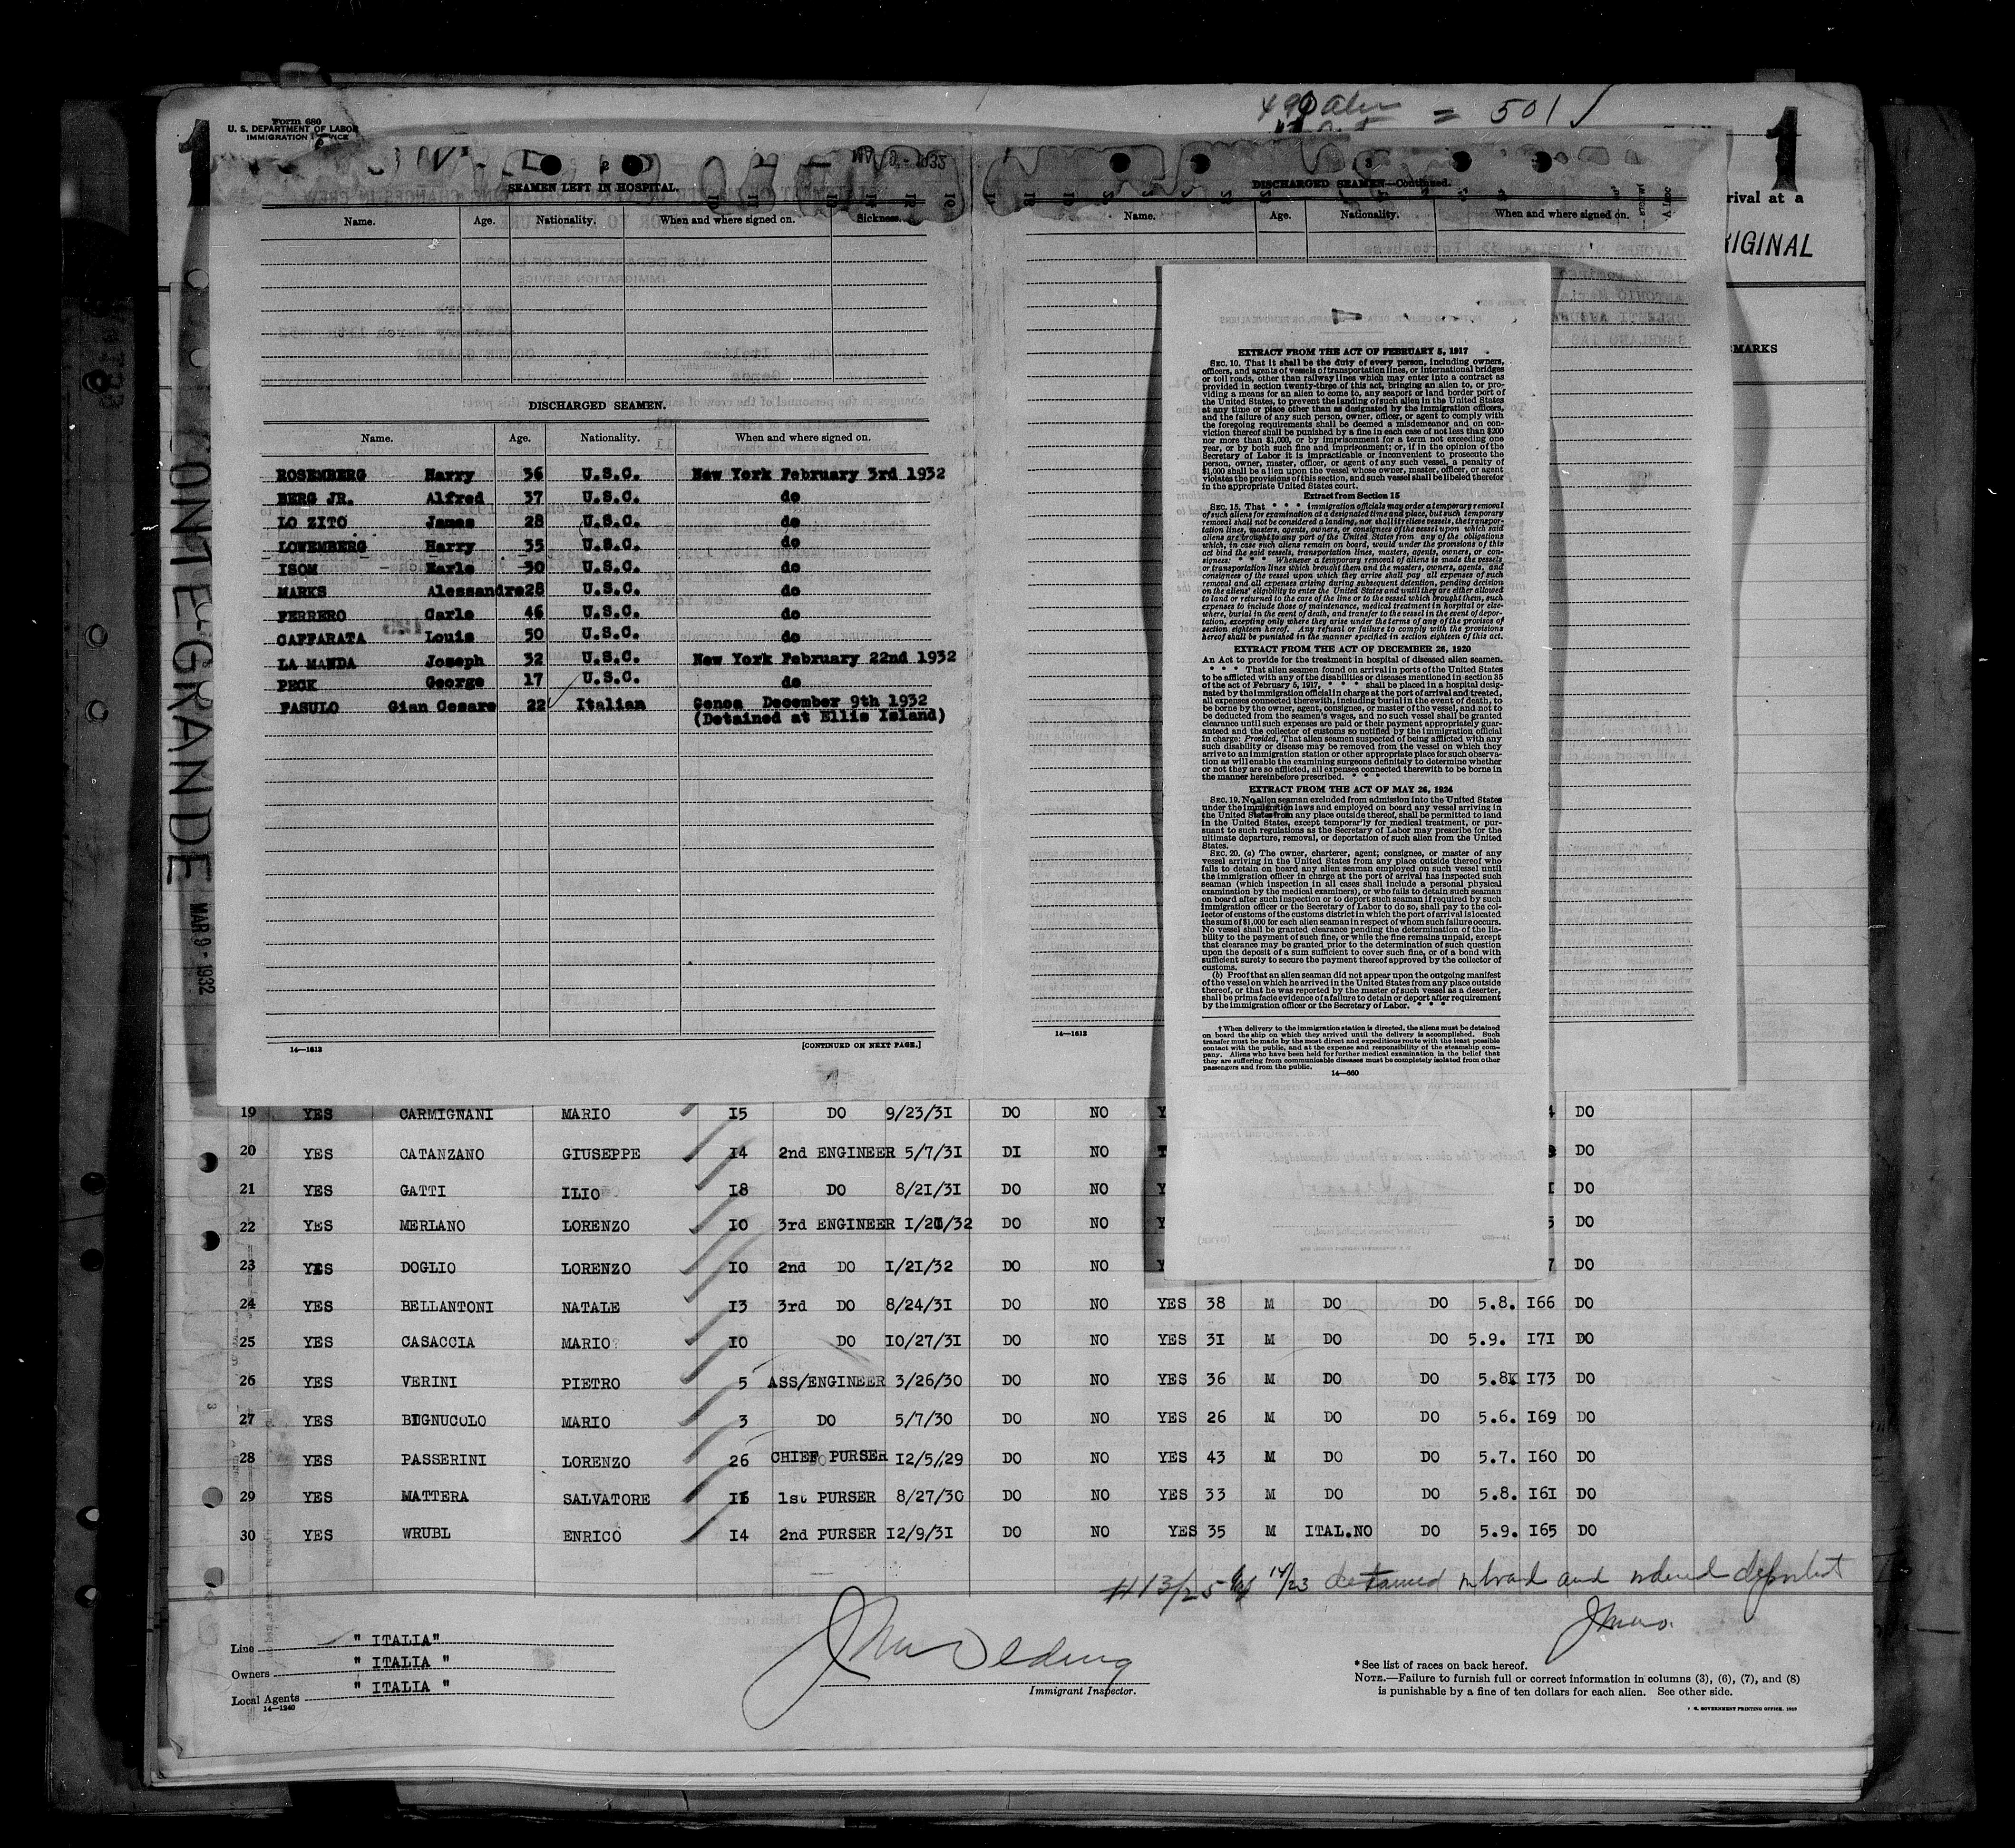 1
Form 680
U. S. DEPARTMENT OF LABOR
IMMIGRATION SERVICE
= 501 √
1
rival at a
RIGINAL
MARKS
CONTE-GRANDE MAR 9 - 1932
MAR 9 - 1932
SEAMEN LEFT IN HOSPITAL.
Name. Age. Nationality. When and where signed on. Sickness.
DISCHARGED SEAMEN.
Name. Age. Nationality. When and where signed on.
ROSEMBERG Harry 36 U.S.C. New York February 3rd 1932
BERG JR. Alfred 37 U.S.C. do
LO ZITO James 28 U.S.C. do
LOWEMBERG Harry 35 U.S.C. do
ISOM Earle 30 U.S.C. do
MARKS Alessandro 28 U.S.C. do
FERRERO Carlo 46 U.S.C. do
CAFFARATA Louis 50 U.S.C. do
LA MANDA Joseph 32 U.S.C. New York February 22nd 1932
PECK George 17 U.S.C. do
FASULO Gian Cesare 22 Italian Genoa December 9th 1932
(Detained at Ellis Island)
14—1613 [CONTINUED ON NEXT PAGE.]
DISCHARGED SEAMEN—Continued.
Name. Age. Nationality. When and where signed on.
14—1613
EXTRACT FROM THE ACT OF FEBRUARY 5, 1917
SEC. 10. That it shall be the duty of every person, including owners,
officers, and agents of vessels of transportation lines, or international bridges
or toll roads, other than railway lines which may enter into a contract as
provided in section twenty-three of this act, bringing an alien to, or pro-
viding a means for an alien to come to, any seaport or land border port of
the United States, to prevent the landing of such alien in the United States
at any time or place other than as designated by the immigration officers,
and the failure of any such person, owner, officer, or agent to comply with
the foregoing requirements shall be deemed a misdemeanor and on con-
viction thereof shall be punished by a fine in each case of not less than $200
nor more than $1,000, or by imprisonment for a term not exceeding one
year, or by both such fine and imprisonment; or, if in the opinion of the
Secretary of Labor it is impracticable or inconvenient to prosecute the
person, owner, master, officer, or agent of any such vessel, a penalty of
$1,000 shall be a lien upon the vessel whose owner, master, officer, or agent
violates the provisions of this section, and such vessel shall be libeled therefor
in the appropriate United States court.
Extract from Section 15
SEC. 15. That * * * immigration officials may order a temporary removal
of such aliens for examination at a designated time and place, but such temporary
removal shall not be considered a landing, nor shall it relieve vessels, the transpor-
tation lines, masters, agents, owners, or consignees of the vessel upon which said
aliens are brought to any port of the United States from any of the obligations
which, in case such aliens remain on board, would under the provisions of this
act bind the said vessels, transportation lines, masters, agents, owners, or con-
signees: * * * Whenever a temporary removal of aliens is made the vessels
or transportation lines which brought them and the masters, owners, agents, and
consignees of the vessel upon which they arrive shall pay all expenses of such
removal and all expenses arising during subsequent detention, pending decision
on the aliens' eligibility to enter the United States and until they are either allowed
to land or returned to the care of the line or to the vessel which brought them, such
expenses to include those of maintenance, medical treatment in hospital or else-
where, burial in the event of death, and transfer to the vessel in the event of depor-
tation, excepting only where they arise under the terms of any of the provisos of
section eighteen hereof. Any refusal or failure to comply with the provisions
hereof shall be punished in the manner specified in section eighteen of this act.
EXTRACT FROM THE ACT OF DECEMBER 26, 1920
An Act to provide for the treatment in hospital of diseased alien seamen.
* * * That alien seamen found on arrival in ports of the United States
to be afflicted with any of the disabilities or diseases mentioned in section 35
of the act of February 5, 1917, * * * shall be placed in a hospital desig-
nated by the immigration official in charge at the port of arrival and treated,
all expenses connected therewith, including burial in the event of death, to
be borne by the owner, agent, consignee, or master of the vessel, and not to
be deducted from the seamen's wages, and no such vessel shall be granted
clearance until such expenses are paid or their payment appropriately guar-
anteed and the collector of customs so notified by the immigration official
in charge: Provided, That alien seamen suspected of being afflicted with any
such disability or disease may be removed from the vessel on which they
arrive to an immigration station or other appropriate place for such observa-
tion as will enable the examining surgeons definitely to determine whether
or not they are so afflicted, all expenses connected therewith to be borne in
the manner hereinbefore prescribed. * * *
EXTRACT FROM THE ACT OF MAY 26, 1924
SEC. 19. No alien seaman excluded from admission into the United States
under the immigration laws and employed on board any vessel arriving in
the United States from any place outside thereof, shall be permitted to land
in the United States, except temporar'ly for medical treatment, or pur-
suant to such regulations as the Secretary of Labor may prescribe for the
ultimate departure, removal, or deportation of such alien from the United
States.
SEC. 20. (a) The owner, charterer, agent, consignee, or master of any
vessel arriving in the United States from any place outside thereof who
fails to detain on board any alien seaman employed on such vessel until
the immigration officer in charge at the port of arrival has inspected such
seaman (which inspection in all cases shall include a personal physical
examination by the medical examiners), or who fails to detain such seaman
on board after such inspection or to deport such seaman if required by such
immigration officer or the Secretary of Labor to do so, shall pay to the col-
lector of customs of the customs district in which the port of arrival is located
the sum of $1,000 for each alien seaman in respect of whom such failure occurs.
No vessel shall be granted clearance pending the determination of the lia-
bility to the payment of such fine, or while the fine remains unpaid, except
that clearance may be granted prior to the determination of such question
upon the deposit of a sum sufficient to cover such fine, or of a bond with
sufficient surety to secure the payment thereof approved by the collector of
customs.
(b) Proof that an alien seaman did not appear upon the outgoing manifest
of the vessel on which he arrived in the United States from any place outside
thereof, or that he was reported by the master of such vessel as a deserter,
shall be prima facie evidence of a failure to detain or deport after requirement
by the immigration officer or the Secretary of Labor. * * *
† When delivery to the immigration station is directed, the aliens must be detained
on board the ship on which they arrived until the delivery is accomplished. Such
transfer must be made by the most direct and expeditious route with the least possible
contact with the public, and at the expense and responsibility of the steamship com-
pany. Aliens who have been held for further medical examination in the belief that
they are suffering from communicable diseases must be completely isolated from other
passengers and from the public.
14—660
19 YES CARMIGNANI MARIO I5 DO 9/23/3I DO NO Y 4 DO
20 YES CATANZANO GIUSEPPE I4 2nd ENGINEER 5/7/3I DI NO DO
21 YES GATTI ILIO I8 DO 8/2I/3I DO NO Y I DO
22 YES MERLANO LORENZO IO 3rd ENGINEER I/20/32 DO NO Y 5 DO
23 YES DOGLIO LORENZO IO 2nd DO I/2I/32 DO NO Y 7 DO
24 YES BELLANTONI NATALE I3 3rd DO 8/24/3I DO NO YES 38 M DO DO 5.8. I66 DO
25 YES CASACCIA MARIO IO DO IO/27/3I DO NO YES 3I M DO DO 5.9. I7I DO
26 YES VERINI PIETRO 5 ASS/ENGINEER 3/26/30 DO NO YES 36 M DO DO 5.8 I73 DO
27 YES BIGNUCOLO MARIO 3 DO 5/7/30 DO NO YES 26 M DO DO 5.6. I69 DO
28 YES PASSERINI LORENZO 26 CHIEF PURSER I2/5/29 DO NO YES 43 M DO DO 5.7. I60 DO
29 YES MATTERA SALVATORE 1st PURSER 8/27/30 DO NO YES 33 M DO DO 5.8. I6I DO
30 YES WRUBL ENRICO I4 2nd PURSER I2/9/3I DO NO YES 35 M ITAL.NO DO 5.9. I65 DO
#13/25 14/23 detained on board and ordered deported
Line " ITALIA"
Owners " ITALIA "
Local Agents " ITALIA "
14—1240
Immigrant Inspector.
* See list of races on back hereof.
NOTE.—Failure to furnish full or correct information in columns (3), (6), (7), and (8)
is punishable by a fine of ten dollars for each alien. See other side.
GOVERNMENT PRINTING OFFICE